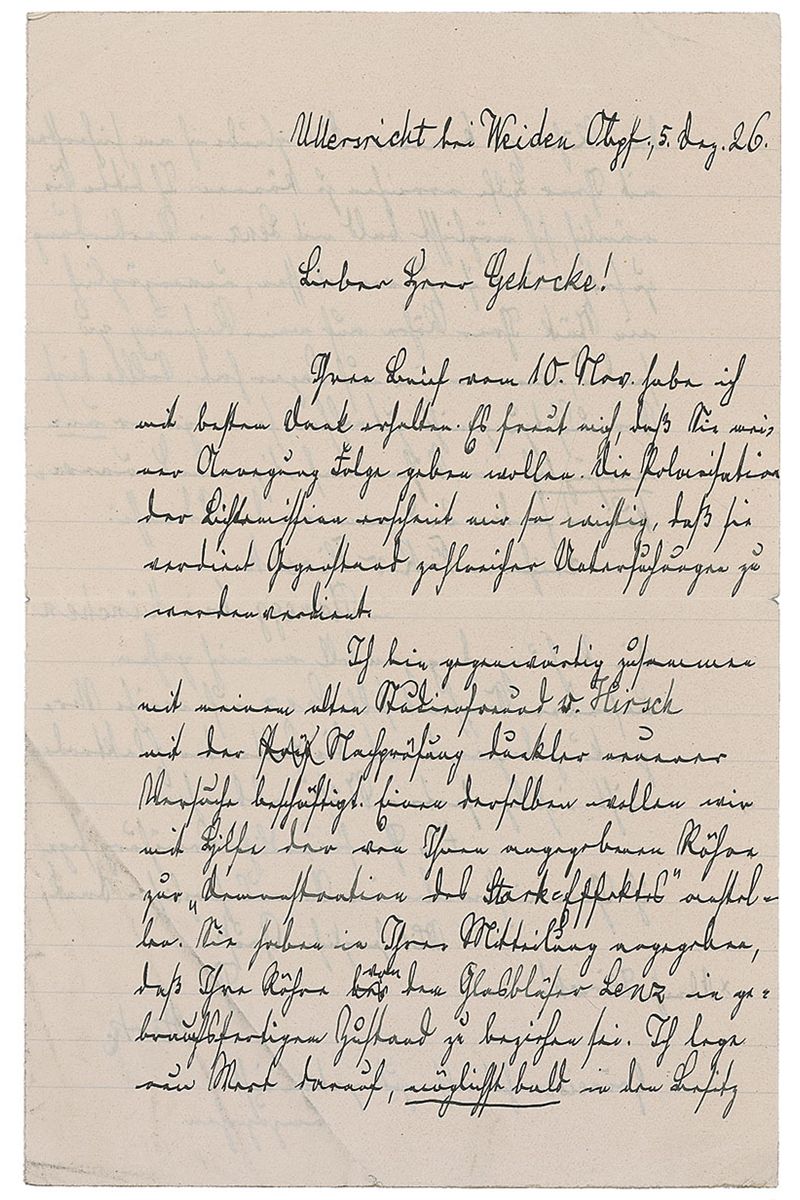 Ullersricht bei Weiden Obpf., 5. Dez. 26.
Lieber Herr Gehrcke!
Ihren Brief vom 10. Nov. habe ich
mit bestem Dank erhalten. Es freut mich, daß Sie mei-
ner Anregung Folge geben wollen. Die Polarisation
der Lichtemission erscheint mir so wichtig, daß sie
verdient Gegenstand zahlreicher Untersuchungen zu
werden verdient.
Ich bin gegenwärtig zusammen
mit meinem alten Studienfreund v. Hirsch
mit der Nachprüfung dunkler neuerer
Versuche beschäftigt. Einen derselben wollen wir
mit Hilfe der von Ihnen angegebenen Röhre
zur „Demonstration des Stark-Effektes" anstel-
len. Sie haben in Ihrer Mitteilung angegeben,
daß Ihre Röhre von dem Glasbläser Lenz in ge-
brauchsfertigem Zustand zu beziehen sei. Ich lege
nun Wert darauf, möglichst bald in den Besitz